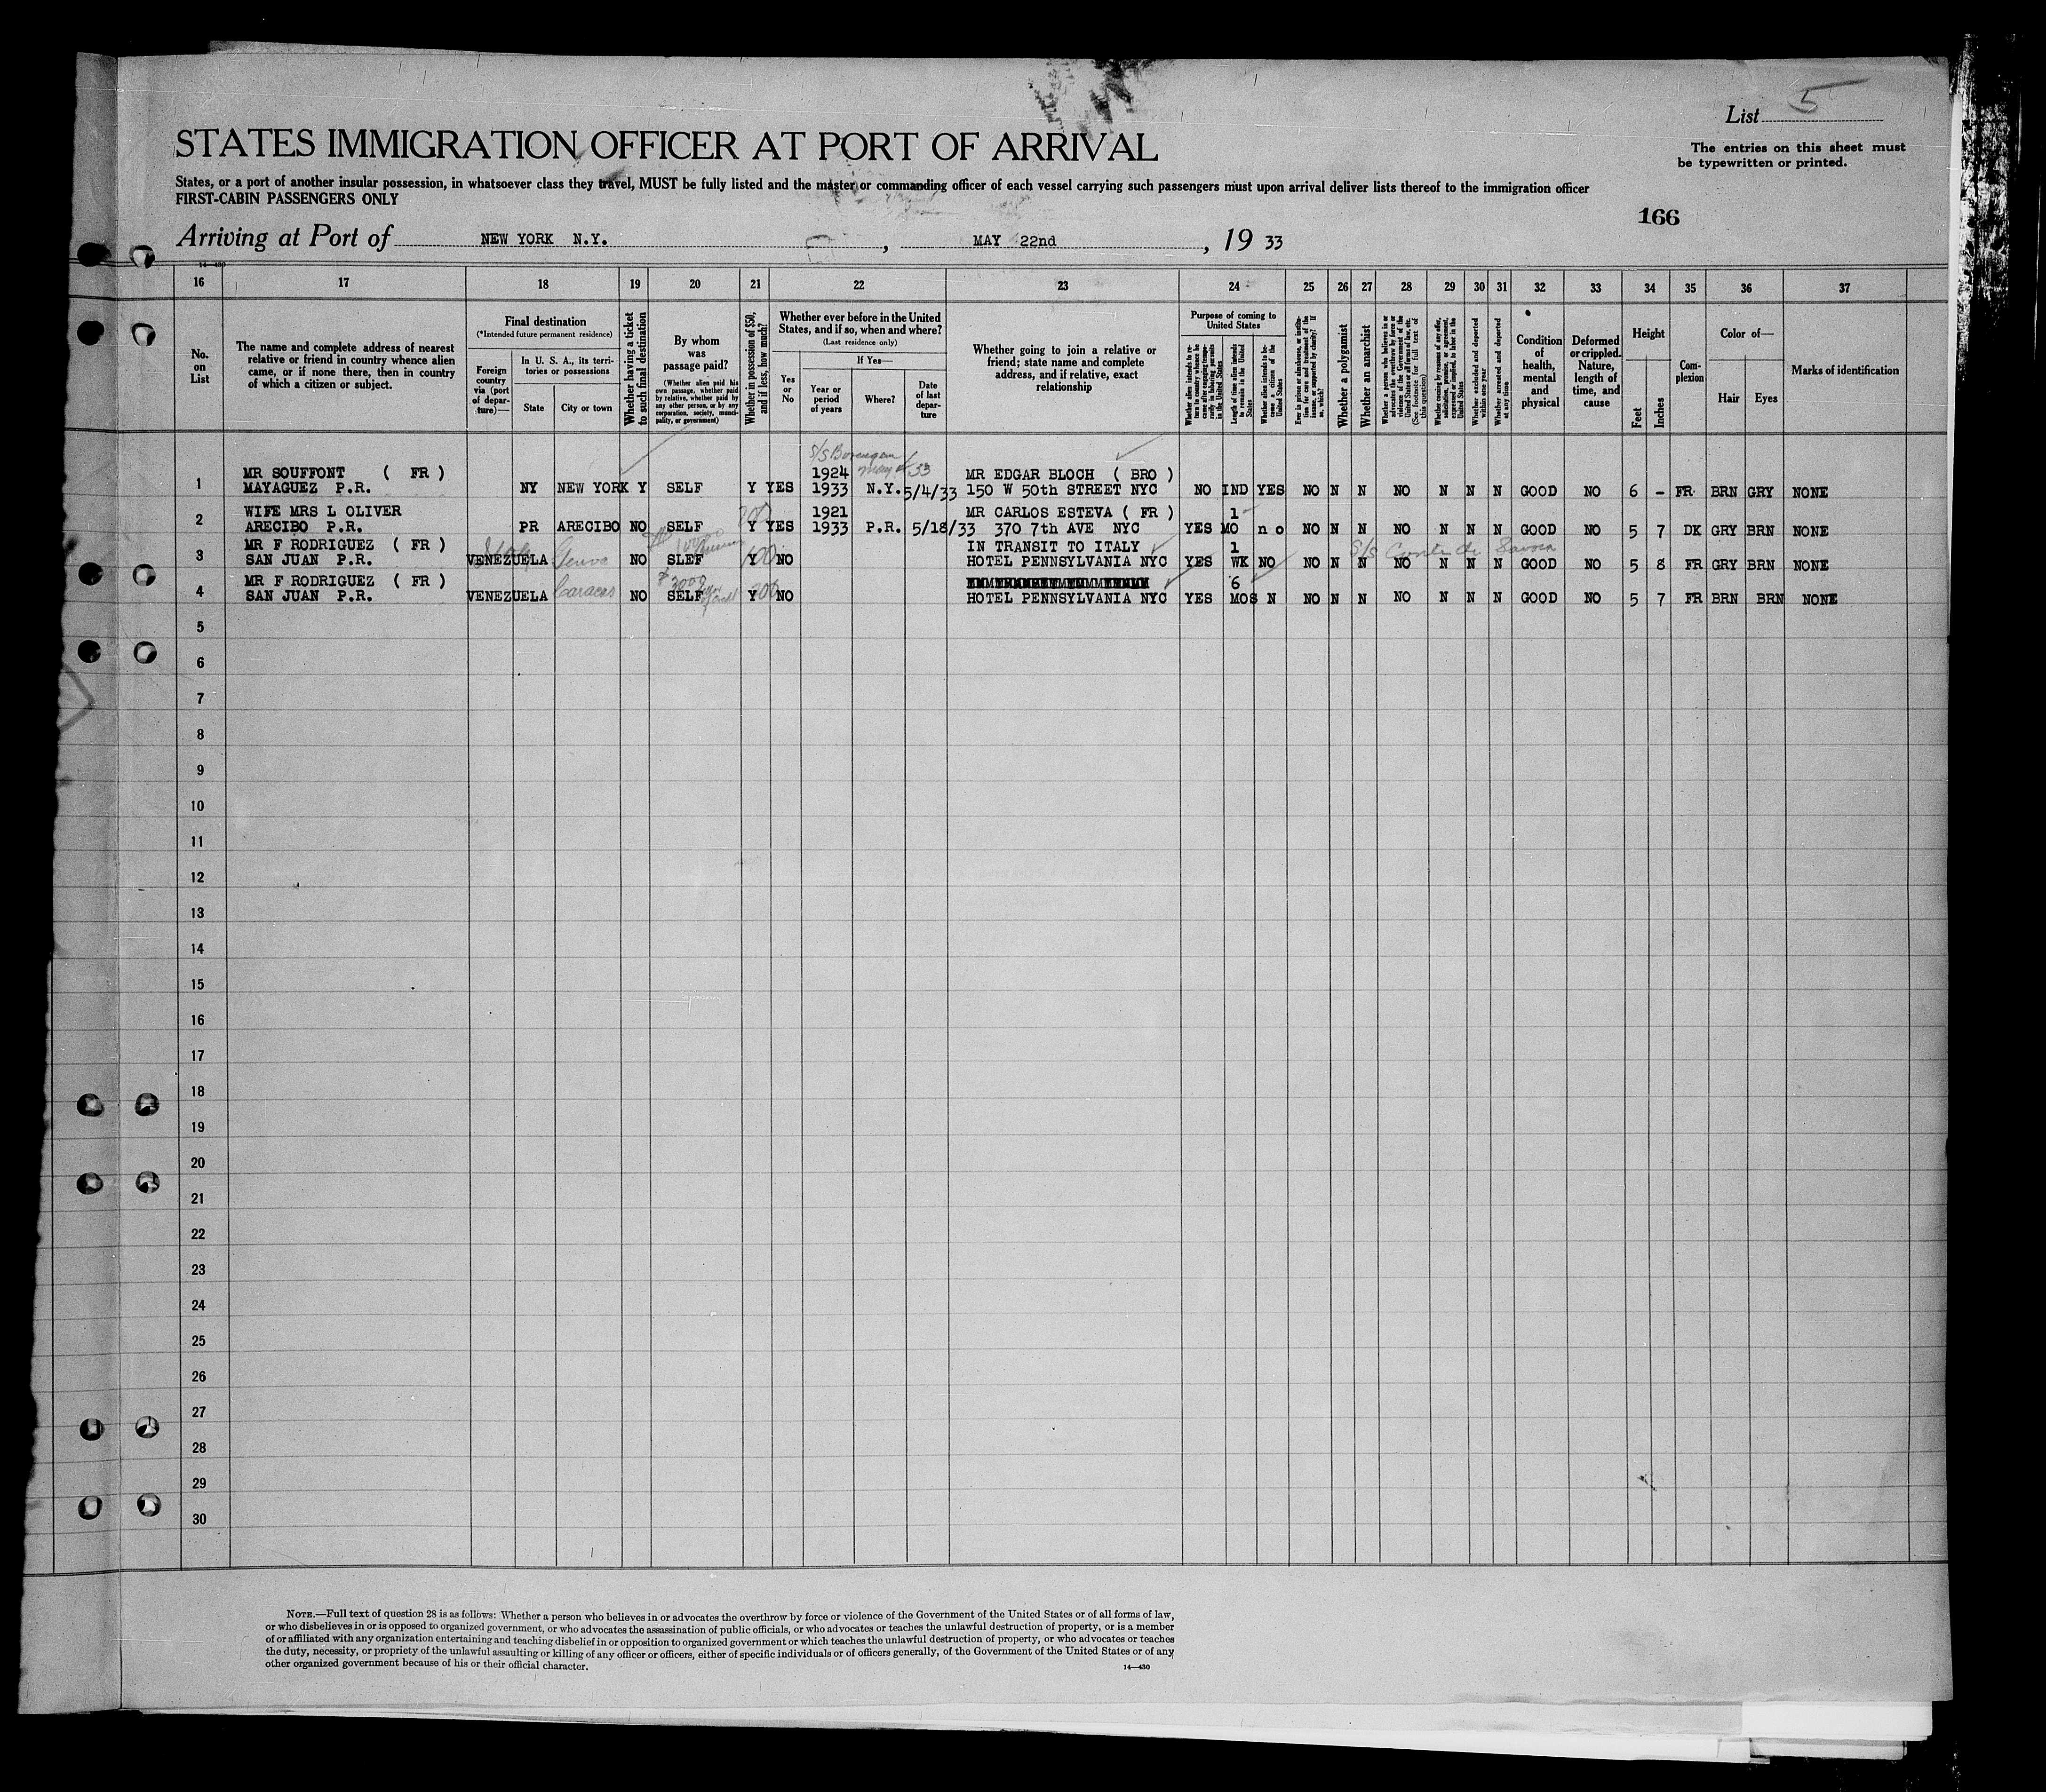 List 5
The entries on this sheet must
be typewritten or printed.
STATES IMMIGRATION OFFICER AT PORT OF ARRIVAL
States, or a port of another insular possession, in whatsoever class they travel, MUST be fully listed and the master or commanding officer of each vessel carrying such passengers must upon arrival deliver lists thereof to the immigration officer
FIRST-CABIN PASSENGERS ONLY
166
Arriving at Port of NEW YORK N.Y. , MAY 22nd , 19 33
14-430
16 17 18 19 20 21 22 23 24 25 26 27 28 29 30 31 32 33 34 35 36 37
No.
on
List
The name and complete address of nearest
relative or friend in country whence alien
came, or if none there, then in country
of which a citizen or subject.
Final destination
(*Intended future permanent residence)
Foreign
country
via (port
of depar-
ture)—
In U. S. A., its terri-
tories or possessions
State
City or town
Whether having a ticket
to such final destination
By whom
was
passage paid?
(Whether alien paid his
own passage, whether paid
by relative, whether paid by
any other person, or by any
corporation, society, munici-
pality, or government)
Whether in possession of $50,
and if less, how much?
Whether ever before in the United
States, and if so, when and where?
(Last residence only)
Yes
or
No
If Yes—
Year or
period
of years
Where?
Date
of last
depar-
ture
Whether going to join a relative or
friend; state name and complete
address, and if relative, exact
relationship
Purpose of coming to
United States
Whether alien intends to re-
turn to country whence he
came after engaging tempo-
rarily in laboring pursuits
in the United States
Length of time alien intends
to remain in the United
States
Whether alien intends to be-
come a citizen of the
United States
Ever in prison or almshouse, or institu-
tion for care and treatment of the
insane, or supported by charity? If
so, which?
Whether a polygamist
Whether an anarchist
Whether a person who believes in or
advocates the overthrow by force or
violence of the Government of the
United States or all forms of law, etc.
(See footnote for full text of
this question)
Whether coming by reason of any offer,
solicitation, promise, or agreement,
expressed or implied, to labor in the
United States
Whether excluded and deported
within one year
Whether arrested and deported
at any time
Condition
of
health,
mental
and
physical
Deformed
or crippled.
Nature,
length of
time, and
cause
Height
Feet
Inches
Com-
plexion
Color of—
Hair
Eyes
Marks of identification
S/S Borinquen
MR SOUFFONT ( FR ) 1924 MR EDGAR BLOCH ( BRO )
1 MAYAGUEZ P.R. NY NEW YORK Y SELF Y YES 1933 N.Y. 5/4/33 150 W 50th STREET NYC NO IND YES NO N N NO N N N GOOD NO 6 - FR BRN GRY NONE
WIFE MRS L OLIVER 1921 MR CARLOS ESTEVA ( FR ) 1
2 ARECIBO P.R. PR ARECIBO NO SELF Y YES 1933 P.R. 5/18/33 370 7th AVE NYC YES MO no NO N N NO N N N GOOD NO 5 7 DK GRY BRN NONE
MR F RODRIGUEZ ( FR ) Italy Genva IN TRANSIT TO ITALY 1 S/S Conte di Savoia
3 SAN JUAN P.R. VENEZUELA NO SLEF Y 100 NO HOTEL PENNSYLVANIA NYC YES WK NO NO N N NO N N N GOOD NO 5 8 FR GRY BRN NONE
MR F RODRIGUEZ ( FR ) Caracas $3000 6
4 SAN JUAN P.R. VENEZUELA NO SELF Y 200 NO HOTEL PENNSYLVANIA NYC YES MOS N NO N N NO N N N GOOD NO 5 7 FR BRN BRN NONE
5
6
7
8
9
10
11
12
13
14
15
16
17
18
19
20
21
22
23
24
25
26
27
28
29
30
NOTE.—Full text of question 28 is as follows: Whether a person who believes in or advocates the overthrow by force or violence of the Government of the United States or of all forms of law,
or who disbelieves in or is opposed to organized government, or who advocates the assassination of public officials, or who advocates or teaches the unlawful destruction of property, or is a member
of or affiliated with any organization entertaining and teaching disbelief in or opposition to organized government or which teaches the unlawful destruction of property, or who advocates or teaches
the duty, necessity, or propriety of the unlawful assaulting or killing of any officer or officers, either of specific individuals or of officers generally, of the Government of the United States or of any
other organized government because of his or their official character.
14-430